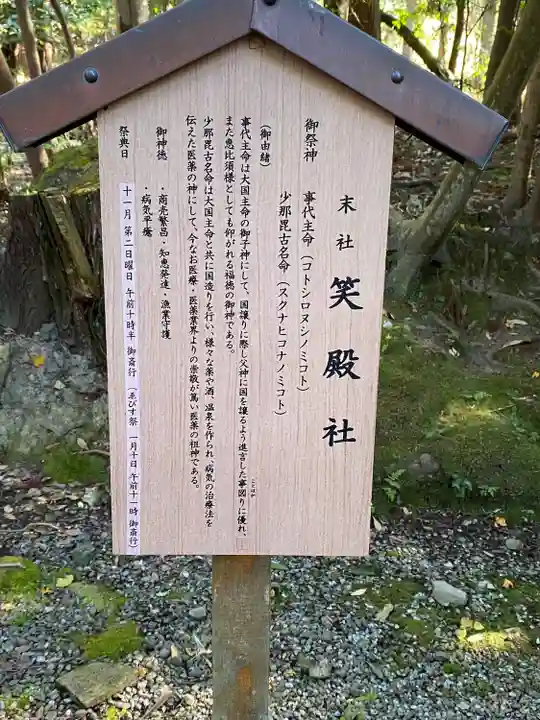 末社 笑殿社
御祭神 事代主命(コトシロヌシノミコト)
少那毘古名命(スクナヒコナノミコト)
(御由緒)
事代主命は大国主命の御子神にして、国譲りに際し父神に国を譲るよう進言した事図りに優れ、
ことはか
また恵比須様としても仰がれる福徳の御神である。
少那毘古名命は大国主命と共に国造りを行い、様々な薬や酒、温泉を作られ、病気の治療法を
伝えた医薬の神にして、今なお医療・医薬業界よりの崇敬が篤い医薬の祖神である。
御神徳 ・商売繁昌・知恵発達・漁業守護
・病気平癒
祭典日 十一月 第二日曜日 午前十時半 御斎行 (ゑびす祭 一月十日 午前十一時 御斎行)